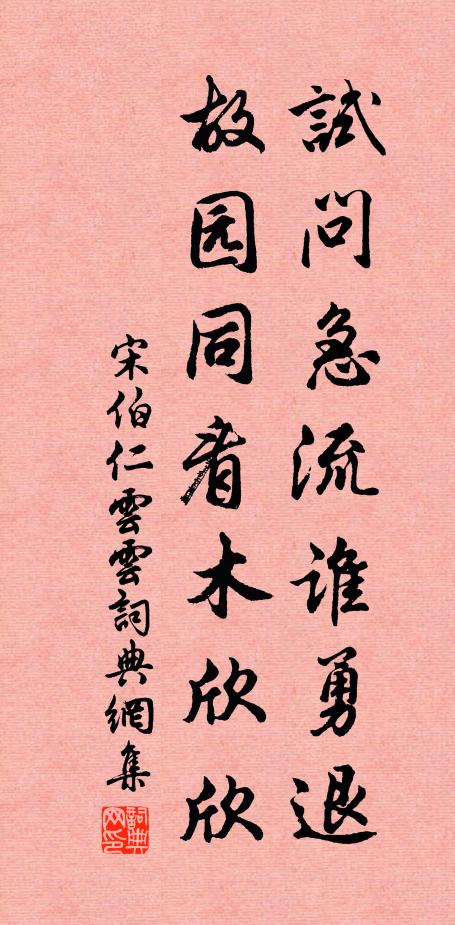 試問急流誰勇退
故园同看木欣欣
宋伯仁雲雲詞典網集
詞典网印